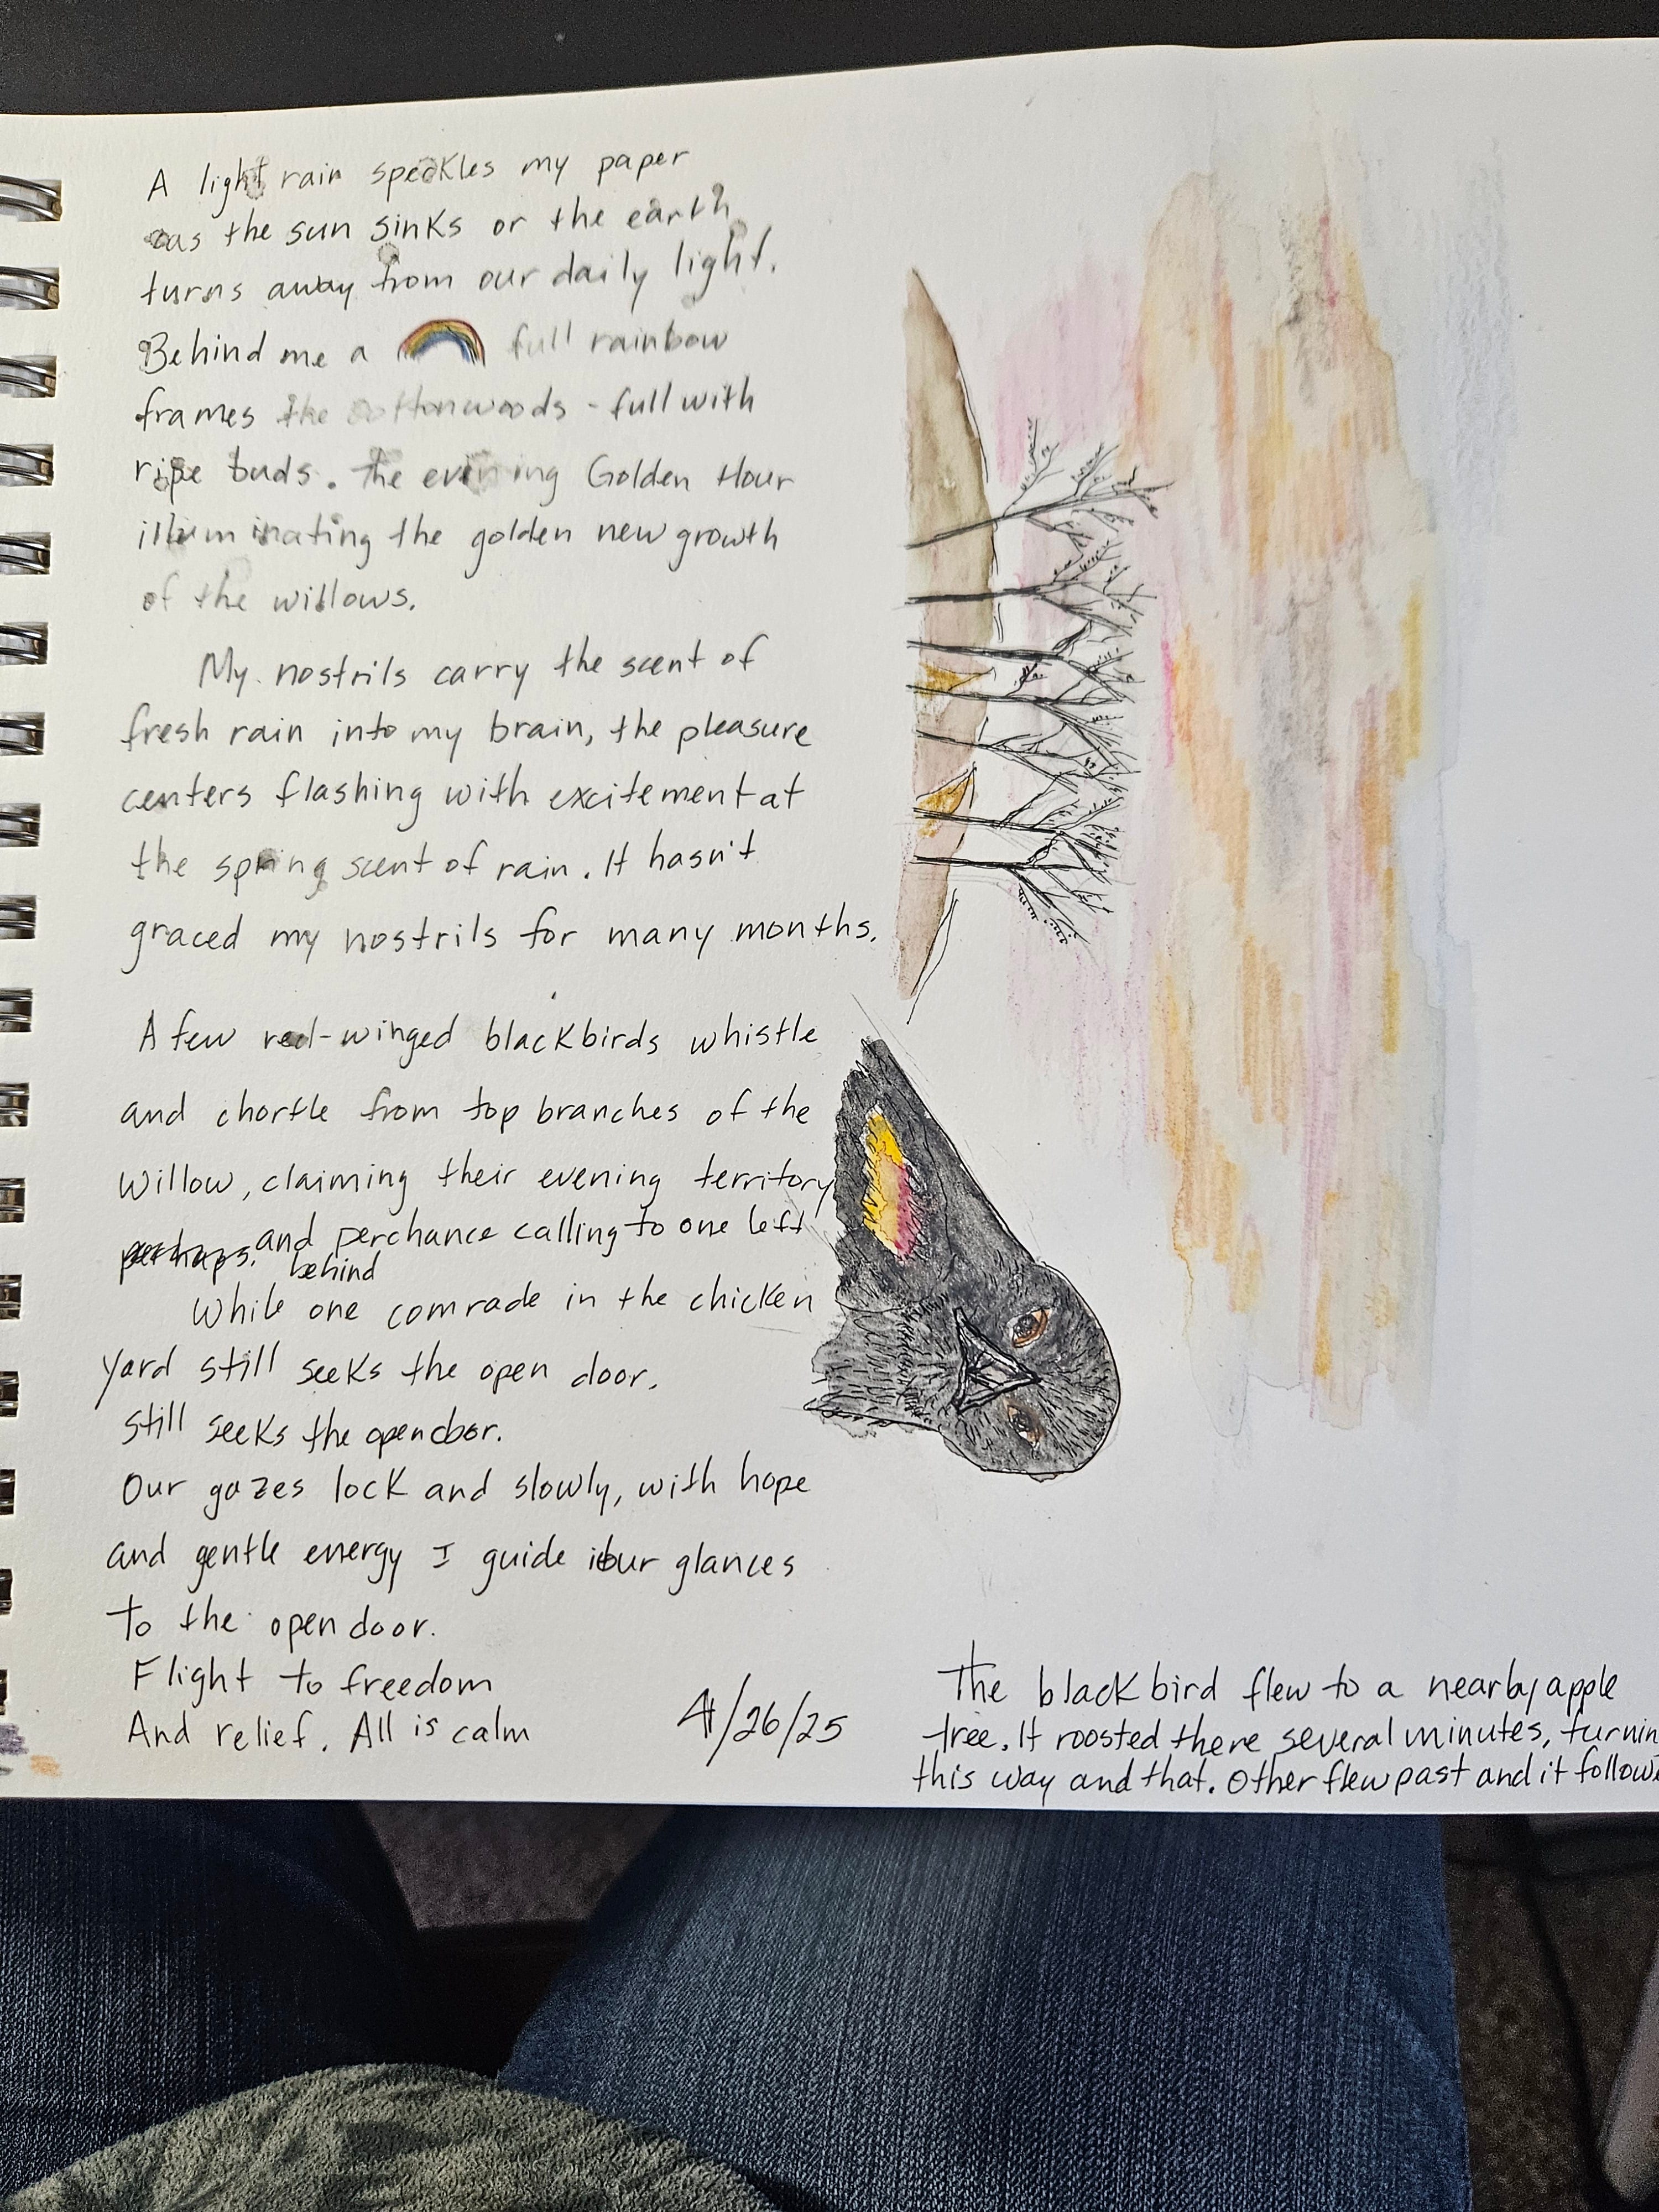 A light rain speckles my paper
as the sun sinks or the earth
turns away from our daily light.
Behind me a full rainbow
frames the cottonwoods - full with
ripe buds. The evening Golden Hour
illuminating the golden new growth
of the willows.
My nostrils carry the scent of
fresh rain into my brain, the pleasure
centers flashing with excitement at
the spring scent of rain. It hasn't
graced my nostrils for many months.
A few red-winged blackbirds whistle
and chortle from top branches of the
willow, claiming their evening territory
perhaps. and perchance calling to one left
behind
While one comrade in the chicken
yard still seeks the open door.
still seeks the open door.
Our gazes lock and slowly, with hope
and gentle energy I guide our glances
to the open door.
Flight to freedom
And relief. All is calm
4/26/25
The blackbird flew to a nearby apple
tree. It roosted there several minutes, turnin
this way and that. Other flew past and it follow